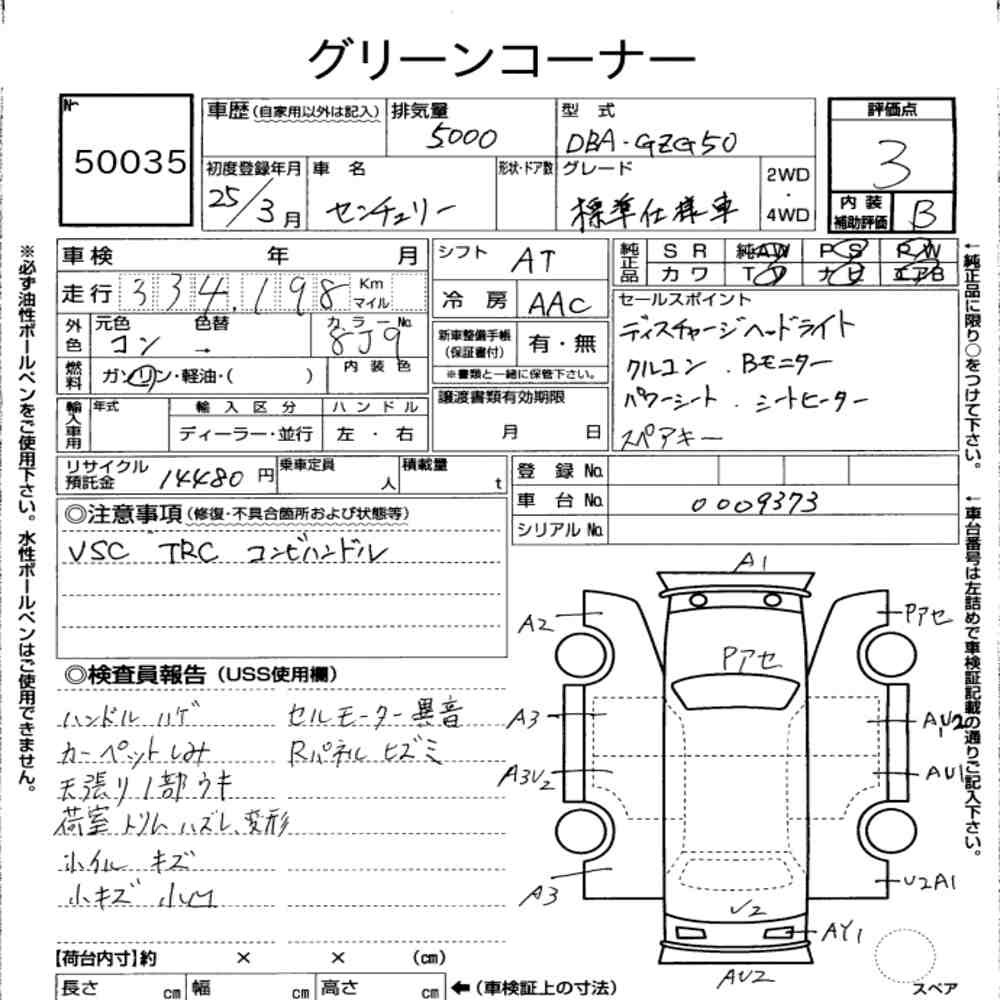 グリーンコーナー
Nr 50035
車歴(自家用以外は記入)
排気量 5000
型 式 DBA-GZG50
評価点 3
初度登録年月 25/3月
車 名 センチュリー
形状・ドア数
グレード 標準仕様車
2WD・4WD
内装補助評価 B
車検 年 月
シフト AT
純正品 SR 純AW PS PW
カワ TV ナビ エアB
走行 334,198 Km マイル
冷 房 AAC
セールスポイント
ディスチャージヘッドライト
クルコン . Bモニター
パワーシート . シートヒーター
スペアキー
外色 元色 コン 色替 →
カラーNo. 8J9
新車整備手帳(保証書付) 有・無
※書類と一緒に保管下さい。
燃料 ガソリン・軽油・( )
内装色
譲渡書類有効期限 月 日
輸入車用 年式
輸入区分 ディーラー・並行
ハンドル 左・右
リサイクル預託金 14480円
乗車定員 人
積載量 t
登 録 No.
車 台 No. 0009373
シリアルNo.
◎注意事項(修復・不具合箇所および状態等)
VSC TRC コンビハンドル
◎検査員報告(USS使用欄)
ハンドル ハゲ
セルモーター異音
カーペットしみ
Rパネル ヒズミ
天張り1部ウキ
荷室トリム ハズレ、変形
ホイル キズ
小キズ 小凹
A1
A2
Pアセ
Pアセ
A3
AU2
A3U2
AU1
A3
U2A1
U2
AY1
AU2
スペア
【荷台内寸】約 × × (cm)
長さ cm 幅 cm 高さ cm ←(車検証上の寸法)
※必ず油性ボールペンをご使用下さい。水性ボールペンはご使用できません。
←純正品に限り○をつけて下さい。
←車台番号は左詰めで車検証記載の通りご記入下さい。